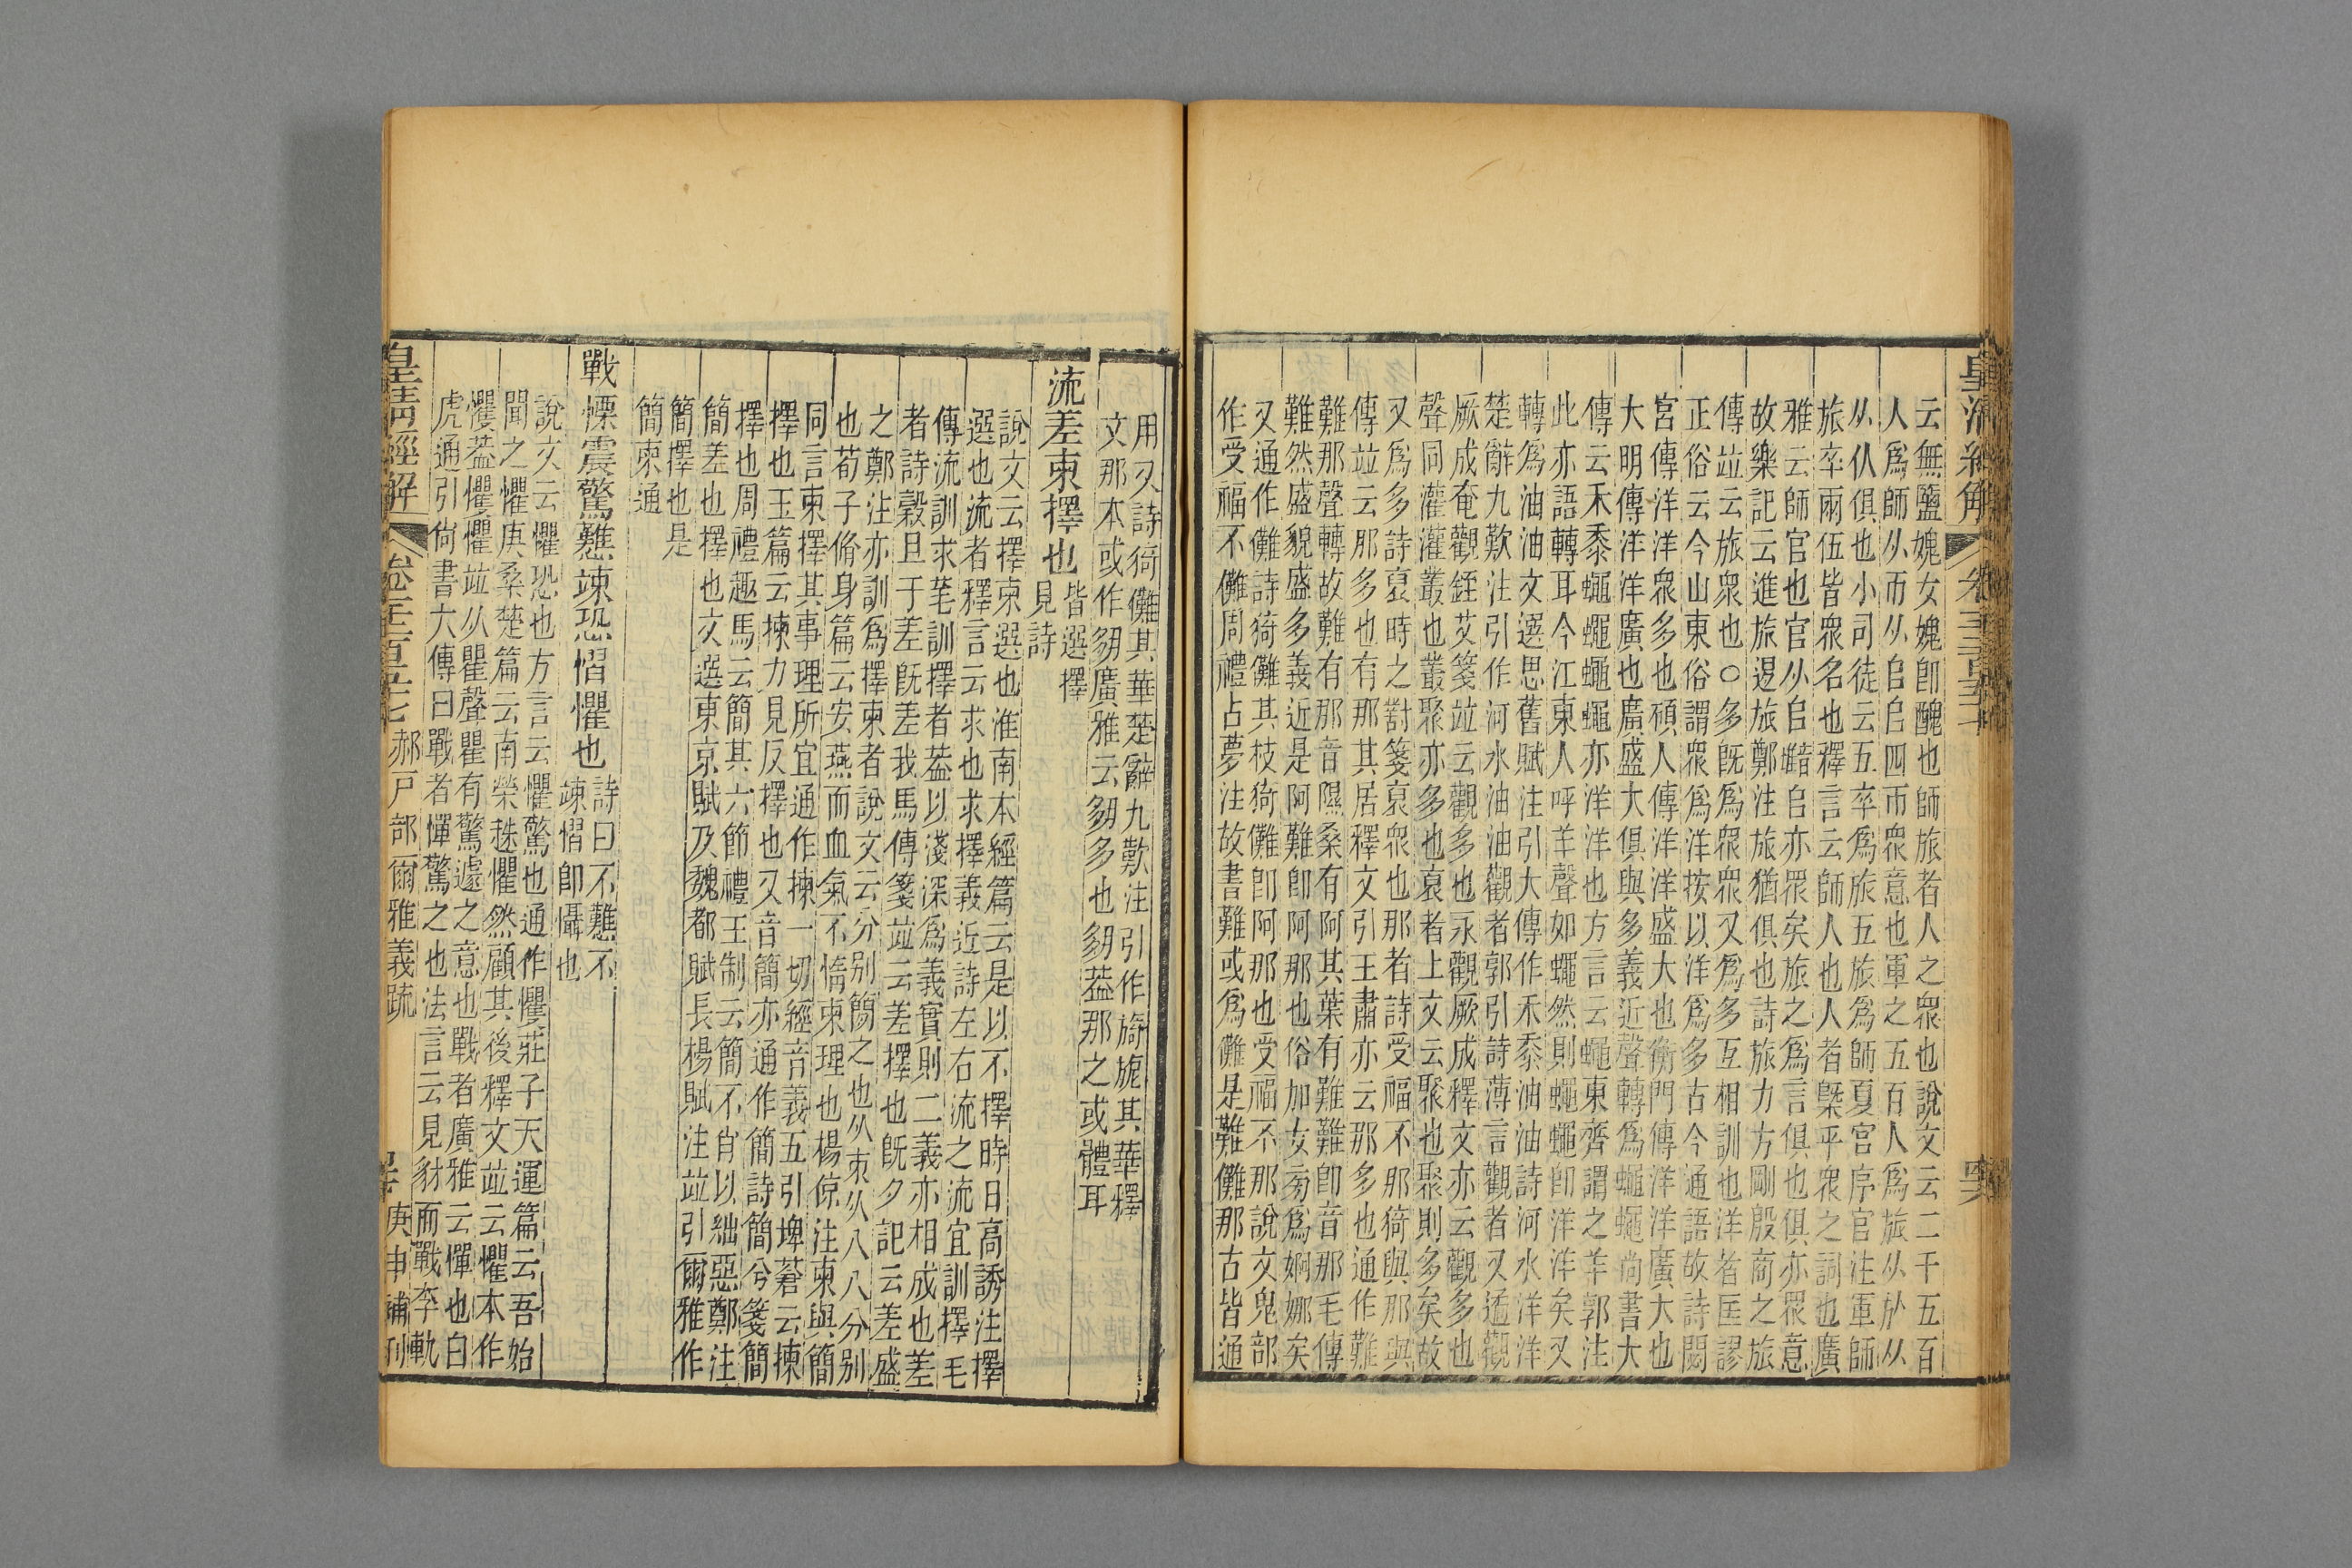 皇清經解 卷
云無鹽媿女媿卽醜也師旅者人之眾也說文云二千五百
人爲師从帀从𠂤𠂤四帀眾意也軍之五百人爲旅从㫃从
从从俱也小司徒云五卒爲旅五旅爲師夏官序官注軍師
旅卒兩伍皆眾名也釋言云師人也人者槩乎眾之詞也廣
雅云師官也官从𠂤𠂤亦眾矣旅之爲言俱也俱亦眾意
故樂記云進旅退旅鄭注旅猶俱也詩旅力方剛殷商之旅
傳竝云旅眾也○多旣爲眾眾又爲多互相訓也洋者匡謬
正俗云今山東俗謂眾爲洋按以洋爲多古今通語故詩閟
宮傳洋洋眾多也碩人傳洋洋盛大也衡門傳洋洋廣大也
大明傳洋洋廣也廣盛大俱與多義近聲轉爲蠅蠅尚書大
傳云禾黍蠅蠅蠅蠅亦洋洋也方言云蠅東齊謂之羊郭注
此亦語轉耳今江東人呼羊聲如蠅然則蠅蠅卽洋洋矣又
轉爲油油文選思舊賦注引大傳作禾黍油油詩河水洋洋
楚辭九歎注引作河水油油觀者郭引詩薄言觀者又遹觀
厥成奄觀銍艾箋竝云觀多也永觀厥成釋文亦云觀多也
聲同灌灌叢也叢聚亦多也裒者上文云聚也聚則多矣故
又爲多詩裒時之對箋裒眾也那者詩受福不那猗與那與
傳竝云那多也有那其居釋文引王肅亦云那多也通作難
難那聲轉故難有那音隰桑有阿其葉有難難卽音那毛傳
難然盛貌盛多義近是阿難卽阿那也俗加女旁爲婀娜矣
又通作儺詩猗儺其枝猗儺卽阿那也受福不那說文鬼部
作受福不儺周禮占夢注故書難或爲儺是難儺那古皆通
用又詩猗儺其華楚辭九歎注引作旖旎其華釋
文那本或作𡖔廣雅云𡖔多也𡖔葢那之或體耳
流差柬擇也皆選擇
見詩
說文云擇柬選也淮南本經篇云是以不擇時日高誘注擇
選也流者釋言云求也求擇義近詩左右流之流宜訓擇毛
傳流訓求芼訓擇者葢以淺深爲義實則二義亦相成也差
者詩穀旦于差旣差我馬傳箋竝云差擇也旣夕記云差盛
之鄭注亦訓爲擇柬者說文云分别簡之也从束从八八分别
也荀子脩身篇云安燕而血氣不惰柬理也楊倞注柬與簡
同言柬擇其事理所宜通作揀一切經音義五引埤蒼云揀
擇也玉篇云揀力見反擇也又音簡亦通作簡詩簡兮箋簡
擇也周禮趣馬云簡其六節禮王制云簡不肖以絀惡鄭注
簡差也擇也文選東京賦及魏都賦長楊賦注竝引爾雅作
簡擇也是
簡柬通
戰慄震驚戁竦恐慴懼也詩曰不戁不
竦慴卽懾也
說文云懼恐也方言云懼驚也通作懼莊子天運篇云吾始
聞之懼庚桑楚篇云南榮趎懼然顧其後釋文竝云懼本作
戄葢懼戄竝从瞿聲瞿有驚遽之意也戰者廣雅云憚也白
虎通引尙書大傳曰戰者憚驚之也法言云見豺而戰李軌
皇淸經解 卷千二百五十七 郝戶部爾雅義疏 庚申補刊